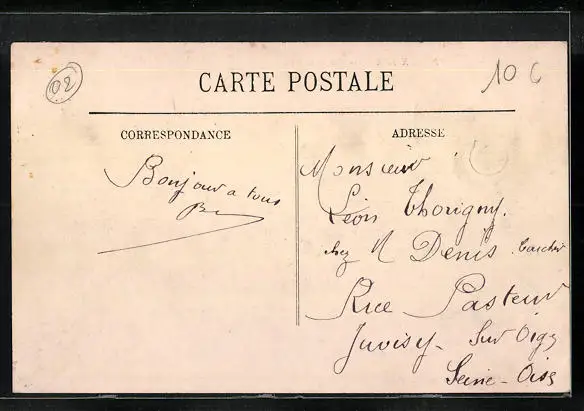 02
CARTE POSTALE
10 c
CORRESPONDANCE
Bonjour a tous
ADRESSE
Monsieur
Léon Thorigny.
chez M Denis
Rue Pasteur
Juvisy - Sur Orge
Seine - Oise